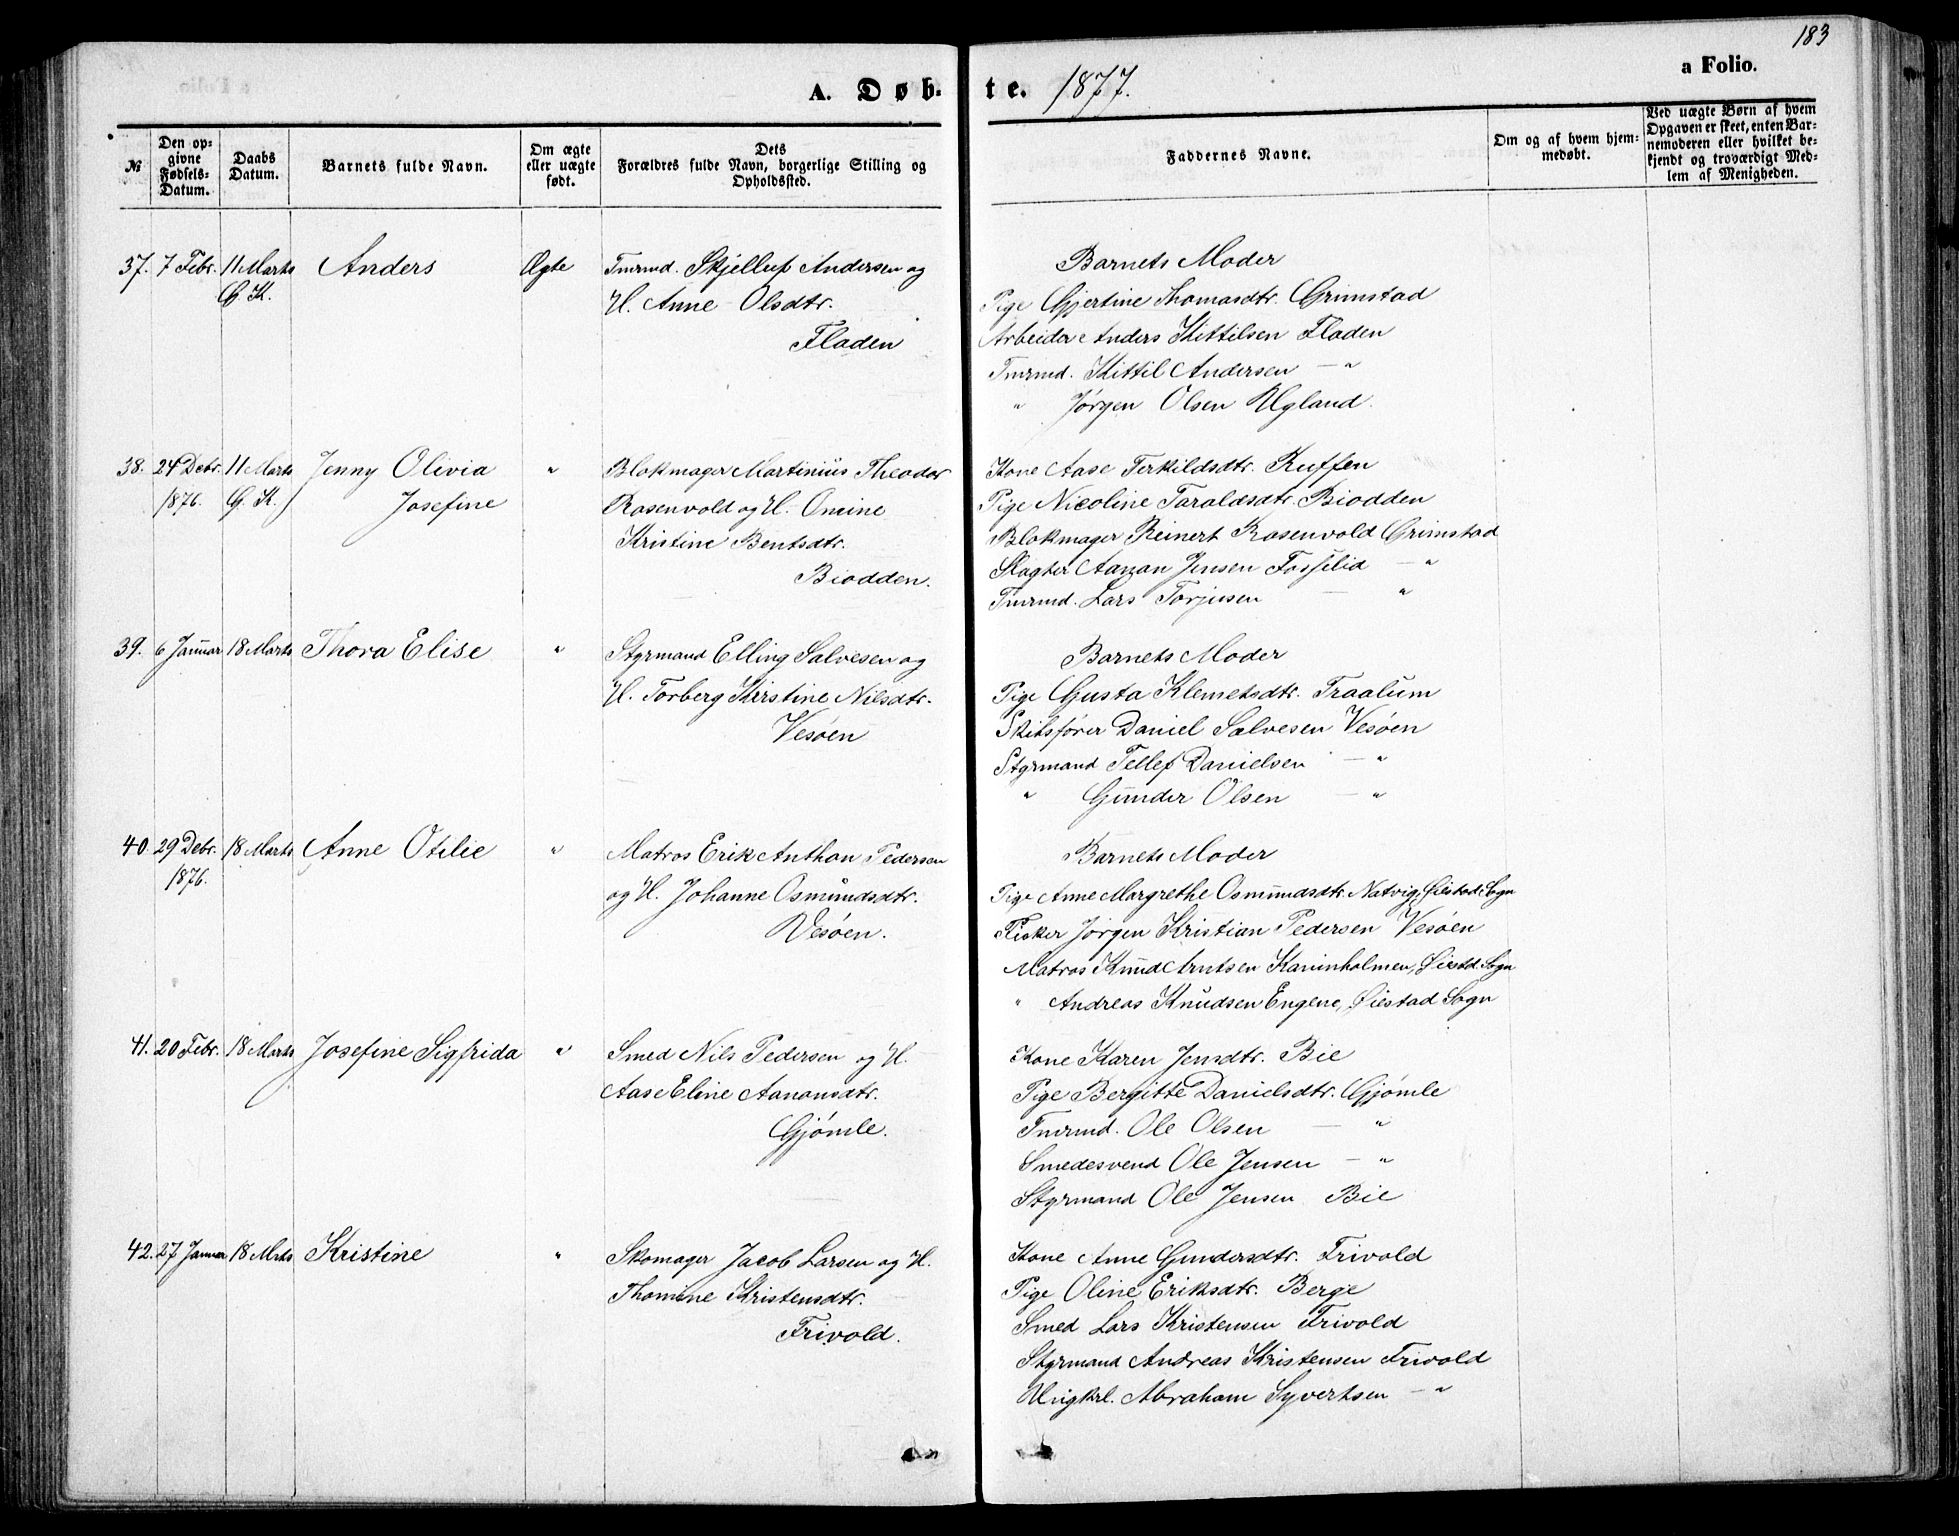 183
A. Døb-
te. 1877.
a Folio.
№
Den op-
givne
Fødsels-
Datum.
Daabs
Datum.
Barnets fulde Navn.
Om ægte
eller uægte
født.
Dets
Forældres fulde Navn, borgerlige Stilling og
Opholdssted.
Faddernes Navne.
Om og af hvem hjem-
medøbt.
Ved uægte Børn af hvem
Opgaven er skeet, enten Bar-
nemoderen eller hvilket be-
kjendt og troværdigt Med-
lem af Menigheden.
37. 7 Febr. 11 Marts Anders Ægte Tmrmd. Skjellup Andersen og
G. K. H. Anne Olsdtr.
Fladen
Barnets Moder
Pige Gjertine Thomasdtr. Grimstad
Arbeider Anders Kittilsen Fladen
Tmrmd. Kittil Andersen — "
" Jørgen Olsen Ugland.
38. 24 Debr. 11 Marts Jenny Olivia " Blokmager Martinius Theodor
1876. G. K. Josefine Rosenvold og H. Omine
Kristine Bentsdtr.
Biodden.
Kone Aase Terkildsdtr. Kuffen
Pige Nicoline Taraldsdtr. Biodden
Blokmager Reinert Rosenvold Grimstad
Slagter Aanon Jensen Fosselid — "
Tmrmd. Lars Torjusen — "
39. 6 Januar 18 Marts Thora Elise " Styrmand Elling Salvesen og
H. Torberg Kirstine Nilsdtr.
Vesøen
Barnets Moder
Pige Gusta Klemetsdtr. Traalum
Skibsfører Daniel Salvesen Vesøen
Styrmand Tellef Danielsen — "
" Gunder Olsen — "
40. 29 Debr. 18 Marts Anne Otilie " Matros Erik Anthon Pedersen
1876. og H. Johanne Osmundsdtr.
Vesøen.
Barnets Moder
Pige Anne Margrethe Osmundsdtr. Natvig, Øiestad Sogn
Fisker Jørgen Kristian Pedersen Vesøen
Matros Knud Arntsen Kaninholmen, Øiestd. Sogn
" Andreas Knudsen Engene, Øiestad Sogn
41. 20 Febr. 18 Marts Josefine Sigfrida " Smed Nils Pedersen og H.
Aase Eline Aanonsdtr.
Gjömle.
Kone Karen Jensdtr. Bie
Pige Bergitte Danielsdtr. Gjömle
Tmrmd. Ole Olsen — "
Smedesvend Ole Jensen — "
Styrmand Ole Jensen Bie
42. 27 Januar 18 Mrts Kristine " Skomager Jacob Larsen og H.
Thomine Kristensdtr.
Frivold.
Kone Anne Gundersdtr. Frivold
Pige Oline Eriksdtr. Berge
Smed Lars Kristensen Frivold
Styrmand Andreas Kristensen Frivold
Ungkrl. Abraham Syvertsen — "